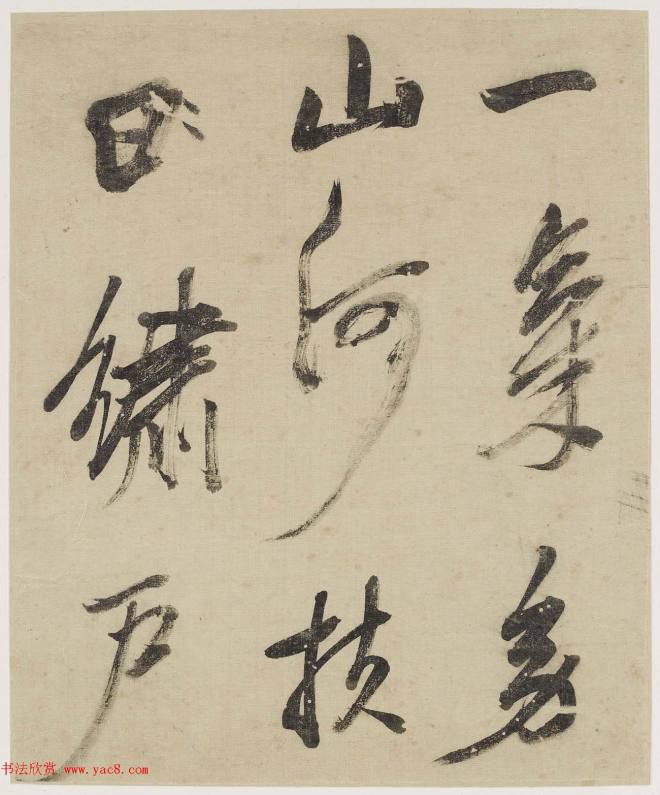 一氣旁
山河扶
日繡戶
书法欣赏 www.yac8.com